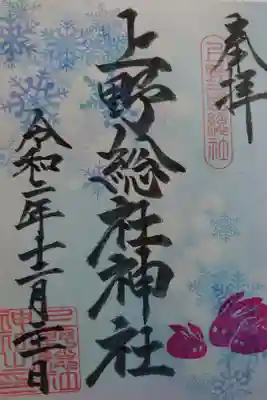 奉拝
上野総社神社
令和二年十二月二十一日